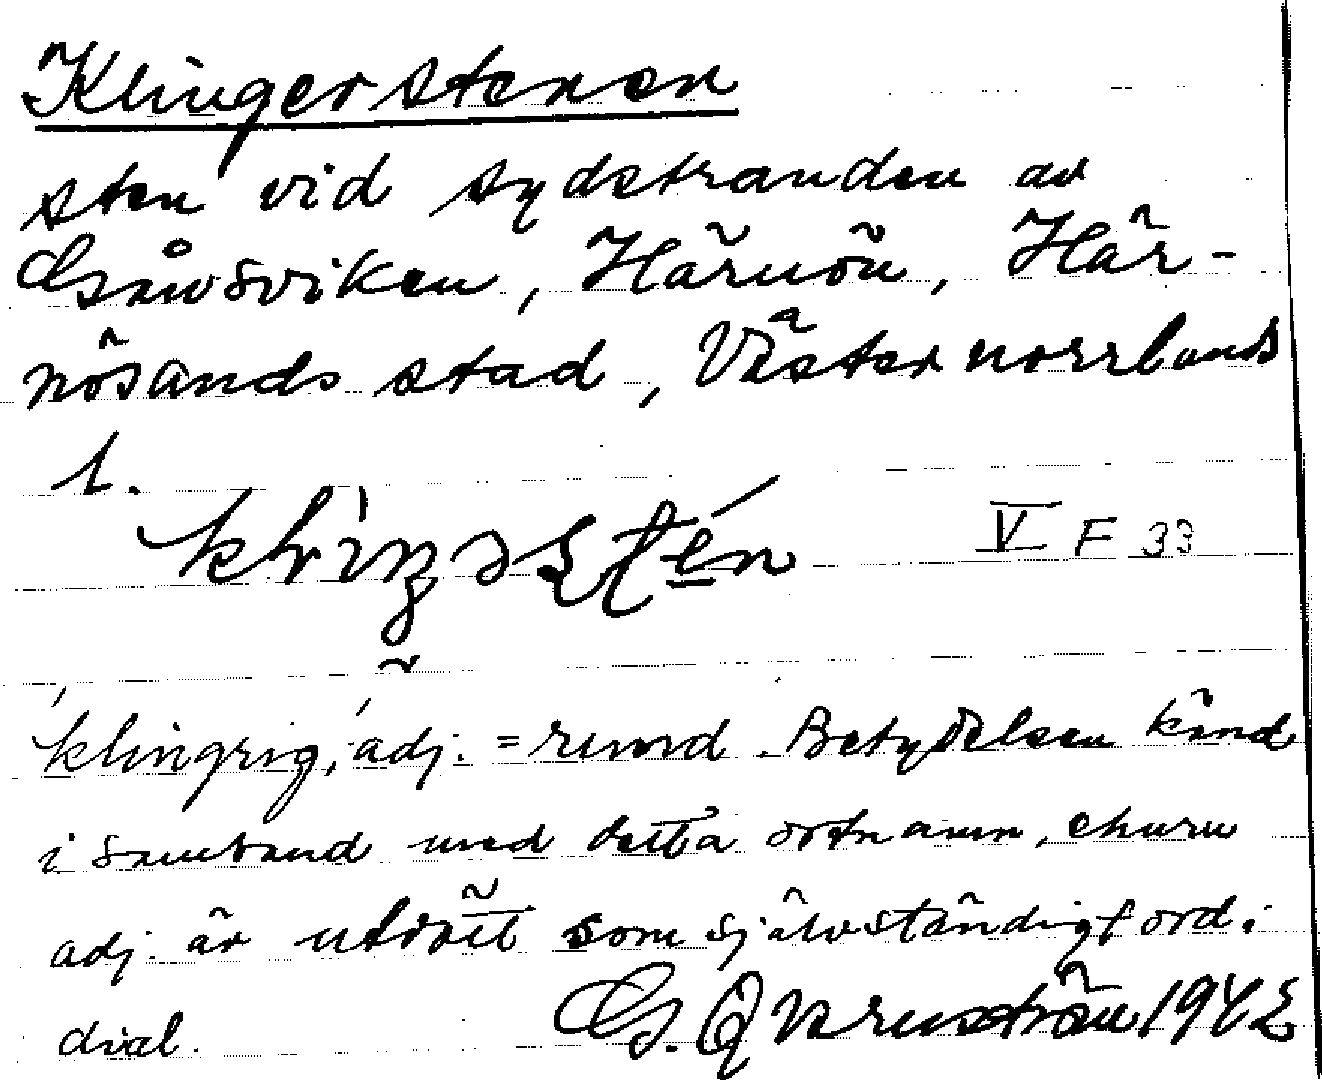 Klingerstenen
sten vid sydstranden av
Gånsviken, Härnön, Här-
nösands stad, Västernorrlands
l.
V F 33
klingrig, adj. = rund. Betydelsen känd
i samband med detta ortnamn, churu
adj. är utdött som självständigt ord i
dial. G. Qvarnström 1942